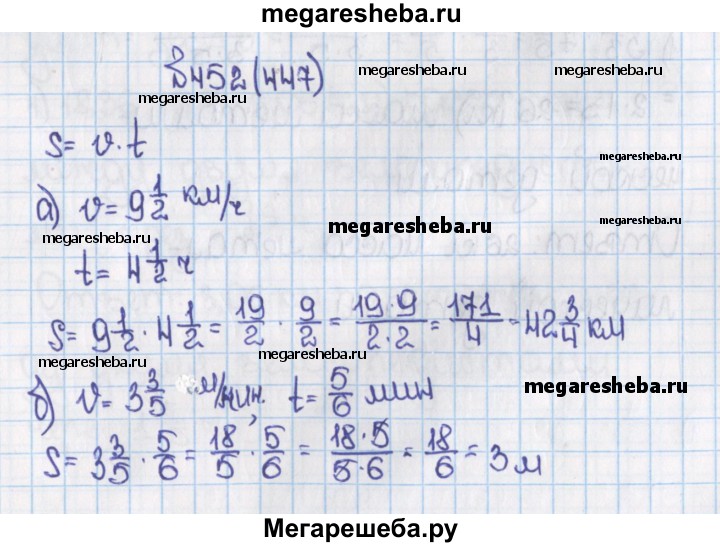 megaresheba.ru
452 (447)
megaresheba.ru
megaresheba.ru
S = v · t
megaresheba.ru
а) v = 9 1/2 км/ч
megaresheba.ru
megaresheba.ru
megaresheba.ru
t = 4 1/2 ч
S = 9 1/2 · 4 1/2 = 19/2 · 9/2 = 19·9/2·2 = 171/4 = 42 3/4 км
megaresheba.ru
megaresheba.ru
б) v = 3 3/5 м/мин. t = 5/6 мин
megaresheba.ru
S = 3 3/5 · 5/6 = 18/5 · 5/6 = 18·5/5·6 = 18/6 = 3 м
Мегарешеба.ру